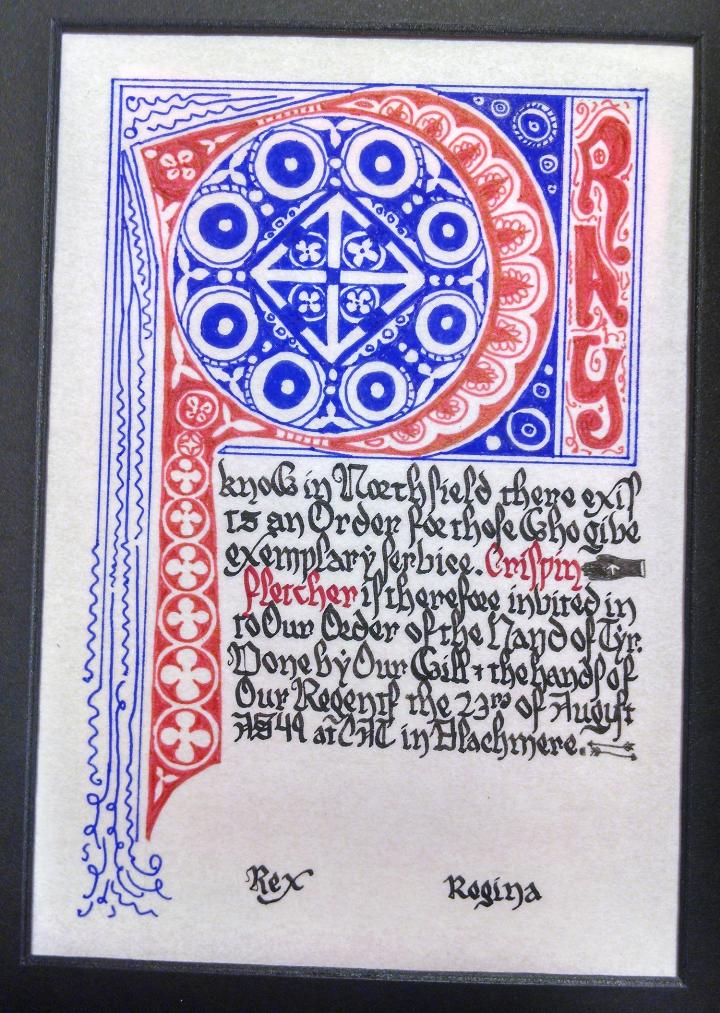 PRAY
know in Northfield there exis
ts an Order for those who give
exemplary service. Crispin
fletcher is therefore invited in
to Our Order of the Hand of Tyr.
Done by Our Will & the hands of
Our Regents the 23rd of August
AS 49 at in Blachmere.
Rex Regina